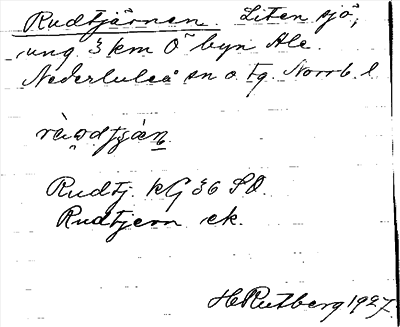 Rudtjärnen. Liten sjö,
ung 3 km Ö byn Ale.
Nederluleå sn o. tg. Norrb. l.
Rudtj. kG 36 SO.
Rudtjern ek.
H Rutberg 1927.